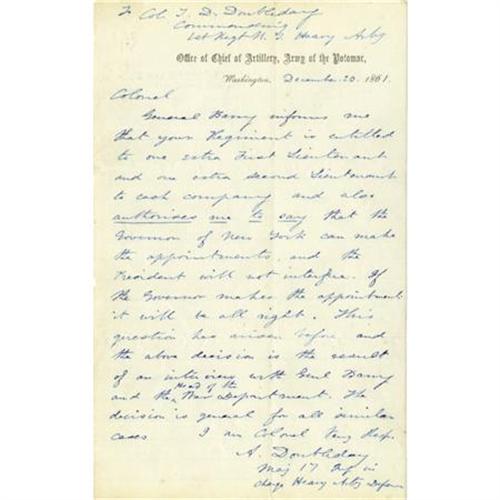 To Col. T. D. Doubleday
Commanding
1st Regt N. Y. Heavy Arty
Office of Chief of Artillery, Army of the Potomac,
Washington, December 20. 1861.
Colonel
General Barry informs me
that your Regiment is entitled
to one extra First Lieutenant
and one extra second Lieutenant
to each company and also
authorises me to say that the
Governor of New York can make
the appointments, and the
President will not interfere. If
the Governor makes the appointment
it will be all right. This
question has arisen before and
the above decision is the result
of an interview with Genl Barry
and the Head of the War Department. The
decision is general for all similar
cases I am Colonel Very Resp.
A. Doubleday
Maj 17 Inf in
charge Heavy Arty Defences